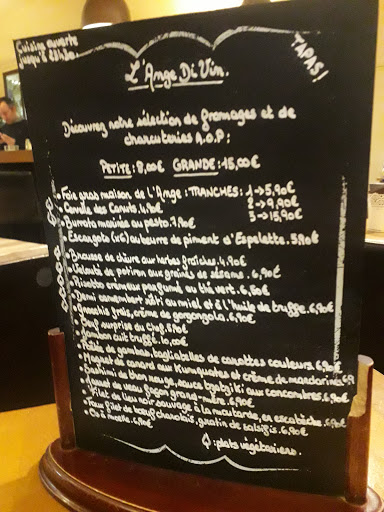 Cuisine ouverte
jusqu'à
TAPAS!
L'Ange Di Vin.
Découvrez notre sélection de fromages et de
charcuteries A.O.P:
PETITE: 8,00€ GRANDE: 15,00€
Foie gras maison de l'Ange: TRANCHES: 1→5,90€
2→9,90€
3→15,90€
Cervelle des Canuts. 4,90€
Burrata marinée au pesto. 7,90€
Escargots (x6) au beurre de piment d'Espelette. 5,90€
Brousse de chèvre aux herbes fraîches. 4,90€
Velouté de potiron aux graines de sésame. 6,90€
Risotto crémeux parfumé au thé vert. 6,50€
Demi camembert rôti au miel et à l'huile de truffe. 6,90€
Gnocchis frais, crème de gorgonzola. 6,90€
Oeuf surprise du chef. 8,90€
Jambon cuit truffé. 10,00€
de gambas, tagliatelles de carottes couleurs. 6,90€
Magret de canard aux kumquats et crème de mandarine 6,9
de thon rouge, sauce tzatziki aux concombres. 6,90€
de veau façon grand-mère. 6,90€
Filet de lieu noir sauce à la moutarde, en escabèche. 6,90€
Faux filet de boeuf charolais, gratin de salsifis. 6,90€
Os à moelle. 6,90€
: plats végétariens.